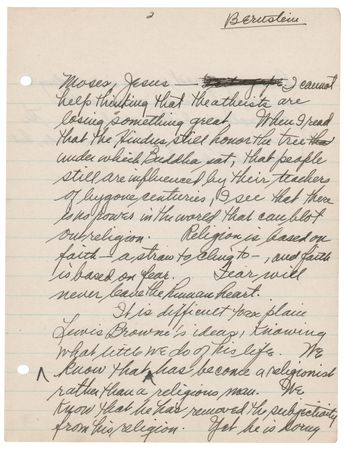 2
Bernstein
Moses, Jesus I cannot
help thinking that the atheists are
losing something great. When I read
that the Hindus still honor the tree
under which Buddha sat, that people
still are influenced by their teachers
of bygone centuries, I see that there
is no power in the world that can blot
out religion. Religion is based on
faith - a straw to cling to -, and faith
is based on fear. Fear will
never leave the human heart.
It is difficult to explain
Lewis Browne's ideas, knowing
what little we do of his life. We
know that has become a religionist
rather than a religious man. We
know that he has removed the subjectivity
from his religion. Yet he is